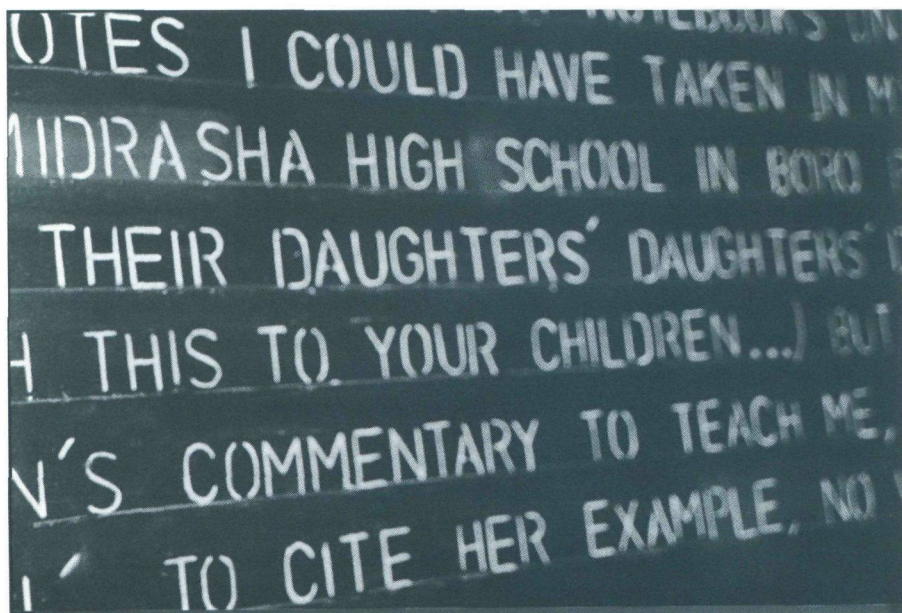 NOTEBOOKS
OTES I COULD HAVE TAKEN IN
MIDRASHA HIGH SCHOOL IN BORO
THEIR DAUGHTERS' DAUGHTERS'
H THIS TO YOUR CHILDREN...) BUT
N'S COMMENTARY TO TEACH ME,
TO CITE HER EXAMPLE, NO